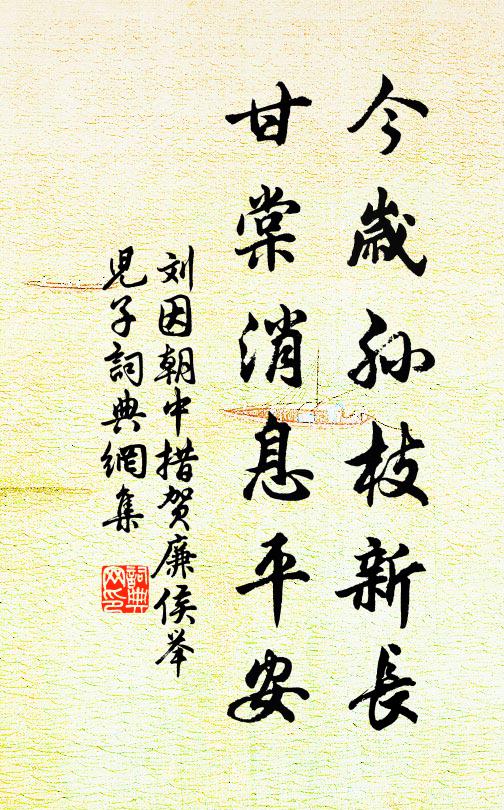 今歲孙枝新長
甘棠消息平安
刘因朝中措贺廉侯举
児子詞典網集
詞典
网印